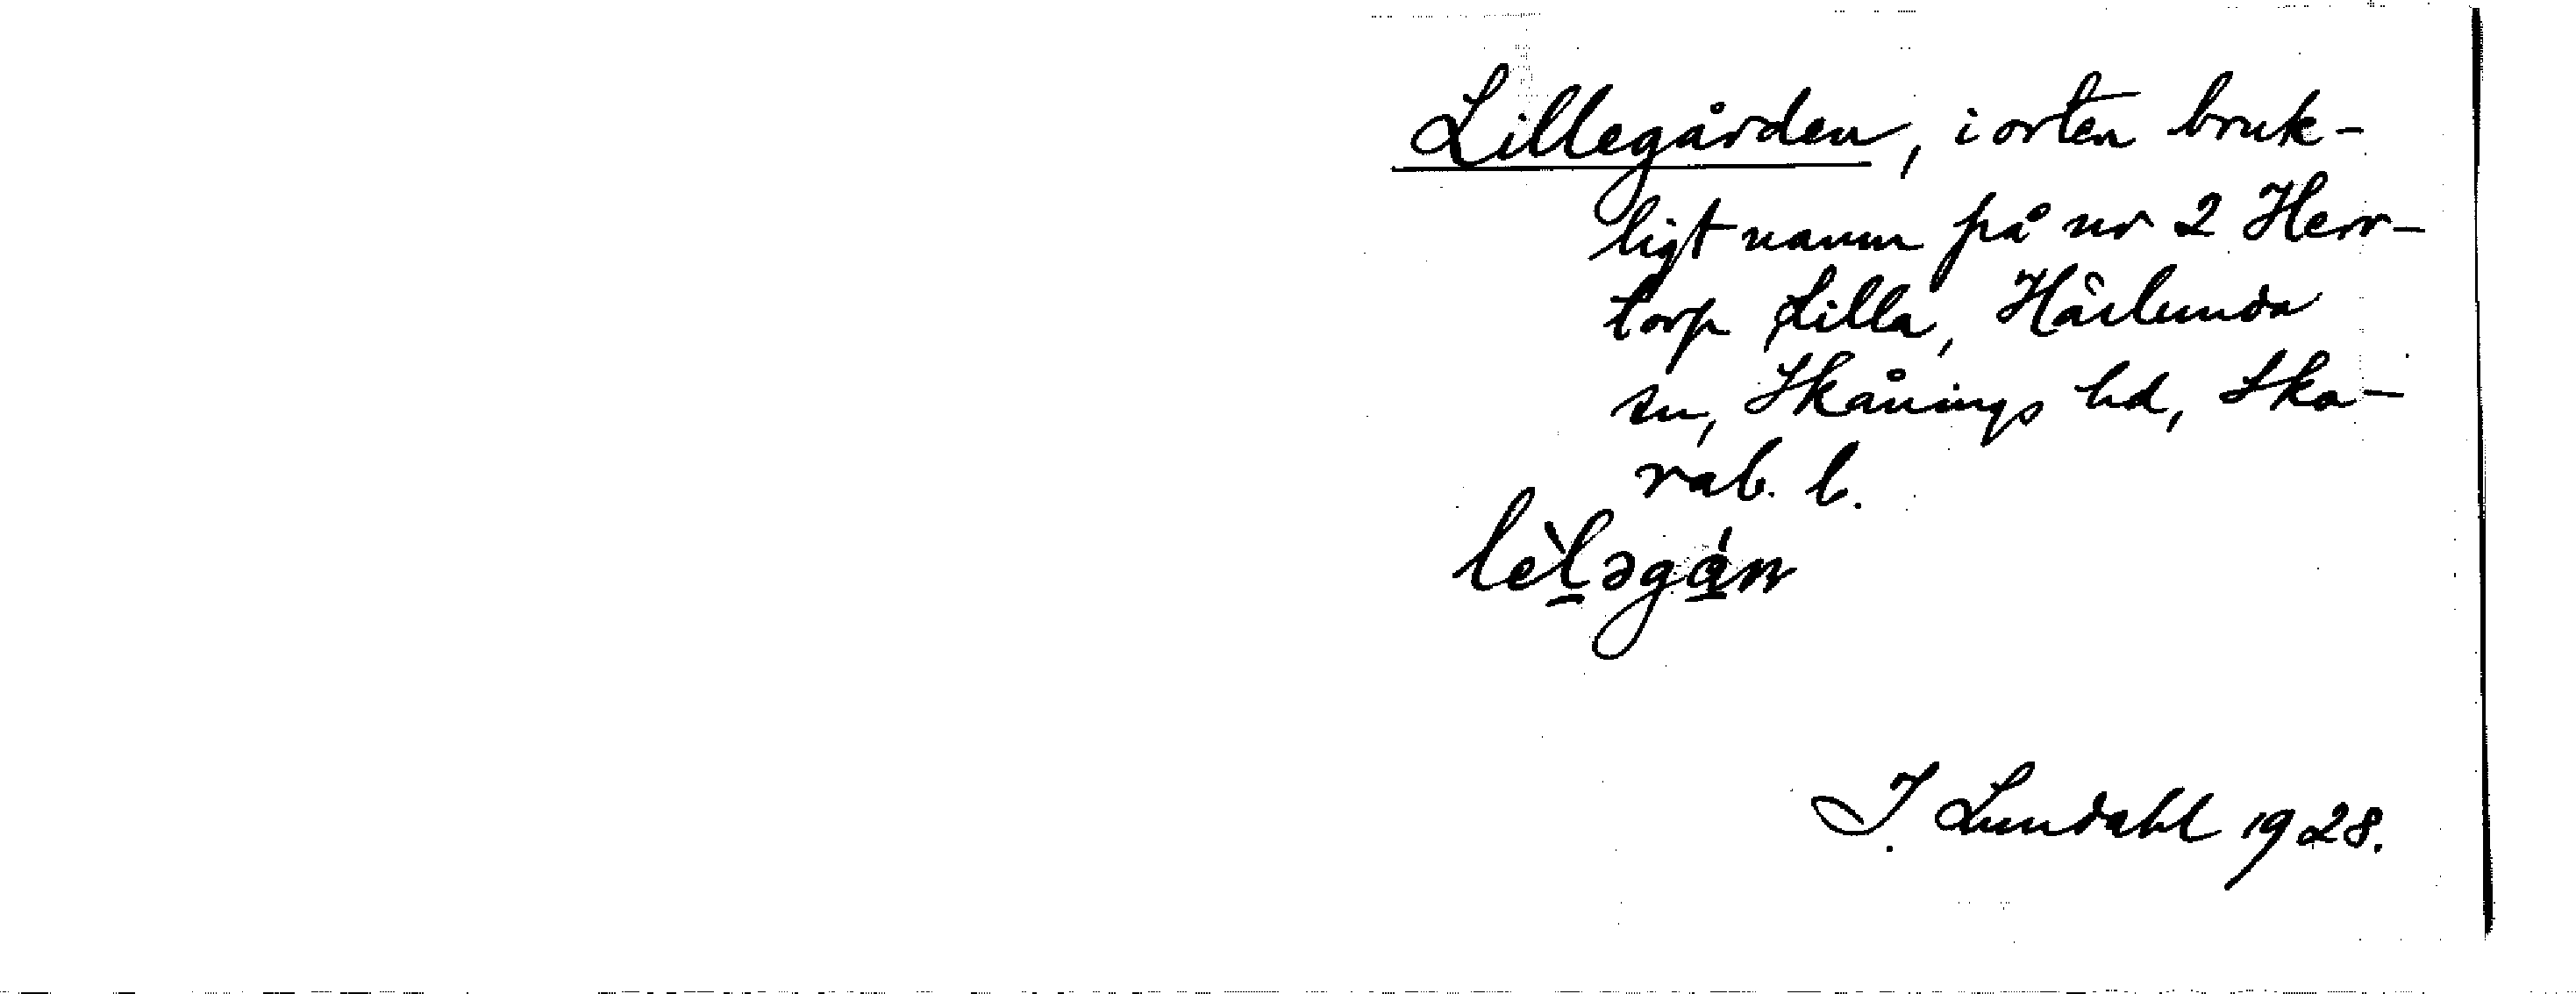 Lillegården, i orten bruk-
ligt namn på nr 2 Herr-
torp Lilla, Härlunda
sn, Skånings hd, Ska-
rab. l.
lèl̠əgá̠n
J. Lundahl 1928.